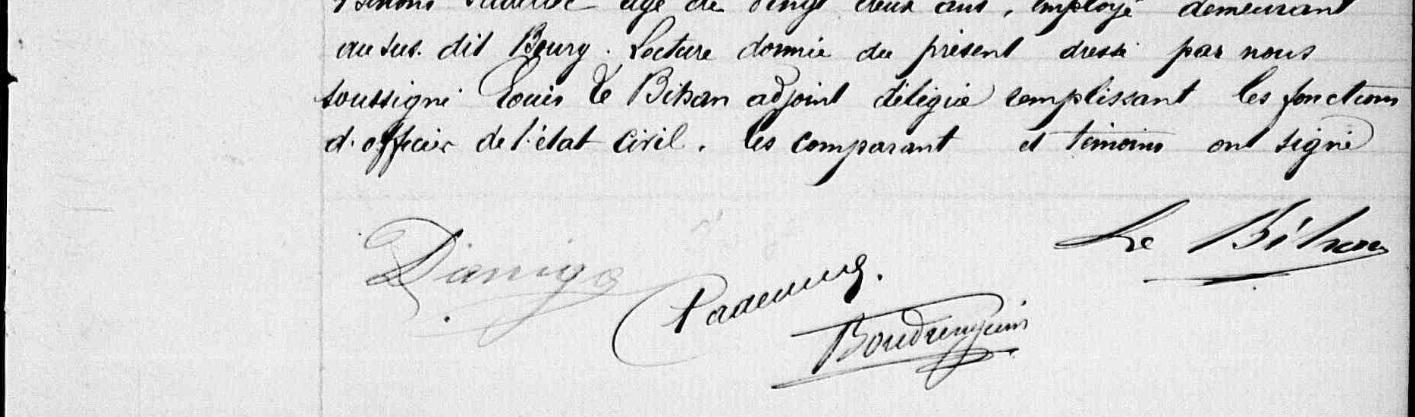 âgé de vingt deux ans, employé demeurant
au sus. dit Bourg. Lecture donnée du présent dressé par nous
soussigné Louis Le Bihan adjoint délégué remplissant les fonctions
d'officier de l'état civil. les comparant et témoins ont signé
Le Bihan
Danigo